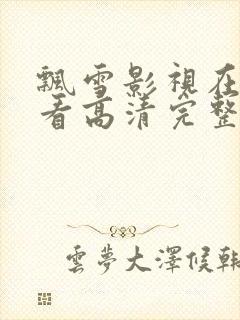 飄雪影視在
看高清完整
雲夢大澤候韓